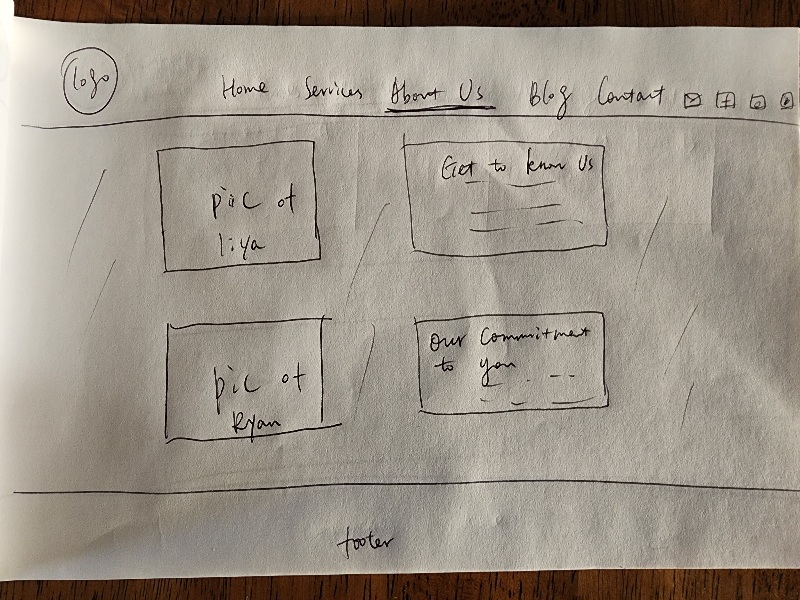 logo
Home Services About Us Blog Contact
pic of
liya
Get to know Us
pic of
Ryan
Our Commitment
to you
footer